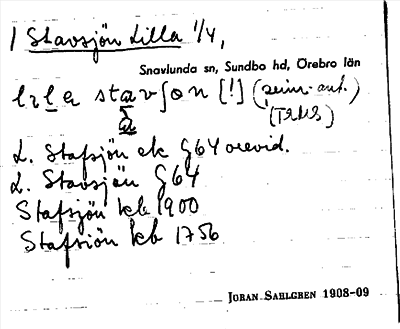 1 Stavsjön Lilla 1/4,
Snavlunda sn, Sundbo hd, Örebro län
lɩla stavʃon [!] (seim.-ant.)
a
L. Stafsjön ek G64 orevid.
L. Stavsjön G64
Stafsjön kb 1900
Stafsiön kb 1756
JÖRAN SAHLGREN 1908-09